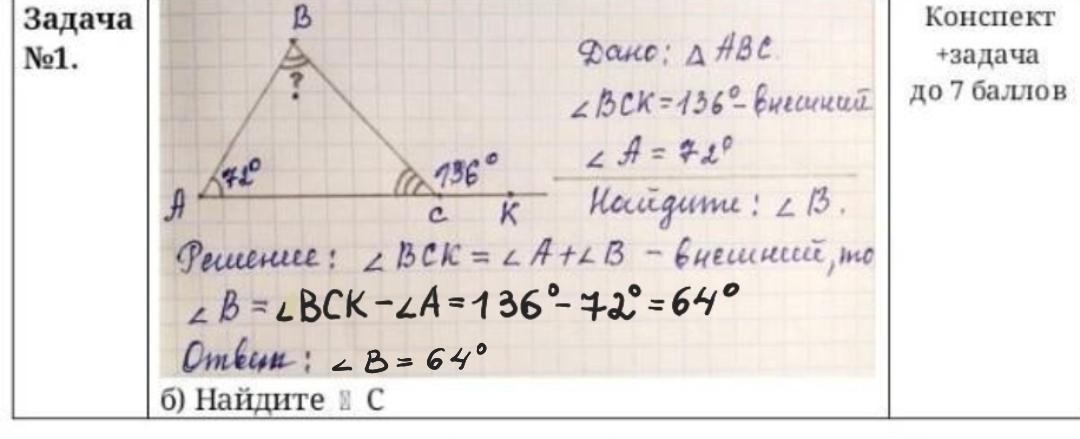 Задача
№1.
B
?
72°
136°
A
C
K
Дано: △ ABC.
∠BCK=136°-внешний
∠ A = 72°
Найдите: ∠ B.
Решение: ∠ BCK = ∠ A+∠ B - внешний, то
∠ B = ∠BCK-∠A=136°-72°=64°
Ответ: ∠ B = 64°
б) Найдите C
Конспект
+задача
до 7 баллов